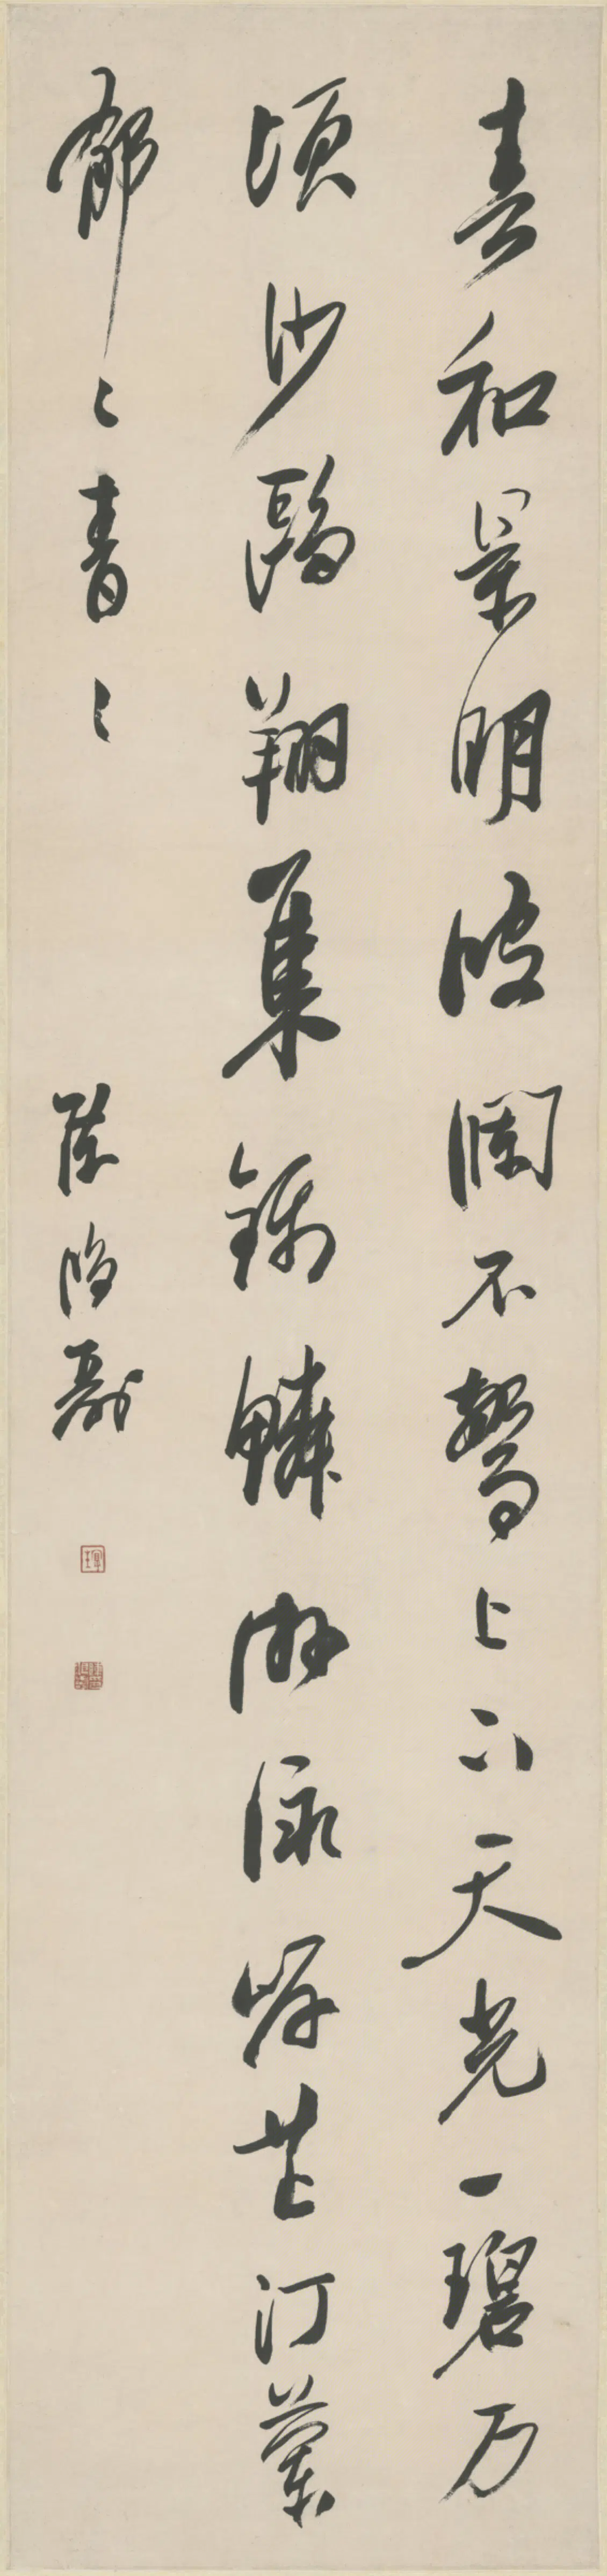 春和景明波瀾不驚上下天光一碧万
頃沙鷗翔集錦鱗游泳岸芷汀蘭
郁〻青〻